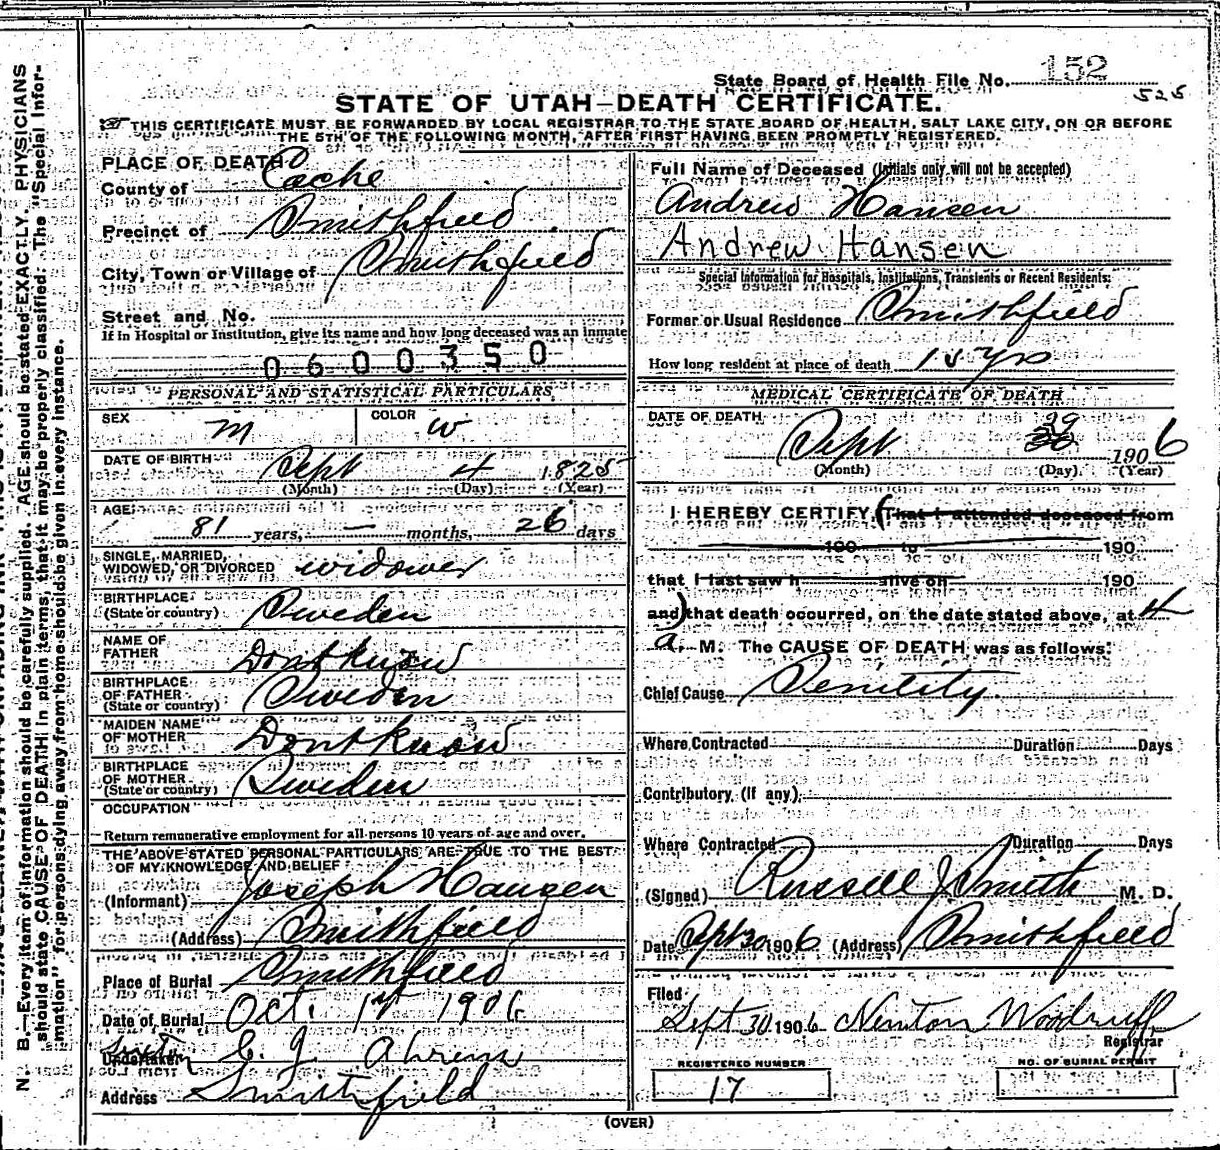 N. B.—Every item of information should be carefully supplied. AGE should be stated EXACTLY. PHYSICIANS
should state CAUSE OF DEATH in plain terms, that it may be properly classified. The "Special Infor-
mation" for persons dying away from home should be given in every instance.
State Board of Health File No. 152
525
STATE OF UTAH—DEATH CERTIFICATE.
THIS CERTIFICATE MUST BE FORWARDED BY LOCAL REGISTRAR TO THE STATE BOARD OF HEALTH, SALT LAKE CITY, ON OR BEFORE
THE 5TH OF THE FOLLOWING MONTH, AFTER FIRST HAVING BEEN PROMPTLY REGISTERED.
PLACE OF DEATH
County of Cache
Precinct of Smithfield
City, Town or Village of Smithfield
Street and No.
If in Hospital or Institution, give its name and how long deceased was an inmate
0600350
PERSONAL AND STATISTICAL PARTICULARS
SEX M COLOR W
DATE OF BIRTH Sept 4 1825
(Month) (Day) (Year)
AGE
81 years, — months, 26 days
SINGLE, MARRIED,
WIDOWED, OR DIVORCED widower
BIRTHPLACE
(State or country) Sweden
NAME OF
FATHER Dont know
BIRTHPLACE
OF FATHER
(State or country) Sweden
MAIDEN NAME
OF MOTHER Dont know
BIRTHPLACE
OF MOTHER
(State or country) Sweden
OCCUPATION
Return remunerative employment for all persons 10 years of age and over.
THE ABOVE STATED PERSONAL PARTICULARS ARE TRUE TO THE BEST
OF MY KNOWLEDGE AND BELIEF
(Informant) Joseph Hansen
(Address) Smithfield
Place of Burial Smithfield
Date of Burial Oct. 1st 1906
Undertaker Sexton E. J. Ahrens
Address Smithfield
Full Name of Deceased (Initials only will not be accepted)
Andrew Hansen
Andrew Hansen
Special Information for Hospitals, Institutions, Transients or Recent Residents:
Former or Usual Residence Smithfield
How long resident at place of death 15 yrs
MEDICAL CERTIFICATE OF DEATH
DATE OF DEATH
Sept 29 1906
(Month) (Day) (Year)
I HEREBY CERTIFY (That I attended deceased from
190 to 190
that I last saw h alive on 190
and) that death occurred, on the date stated above, at 4
a. M. The CAUSE OF DEATH was as follows:
Chief Cause Senility.
Where Contracted Duration Days
Contributory (if any)
Where Contracted Duration Days
(Signed) Russell J Smith M. D.
Date Sept 30 1906 (Address) Smithfield
Filed
Sept 30 1906 Newton Woodruff
Registrar
REGISTERED NUMBER
17
NO. OF BURIAL PERMIT
(OVER)